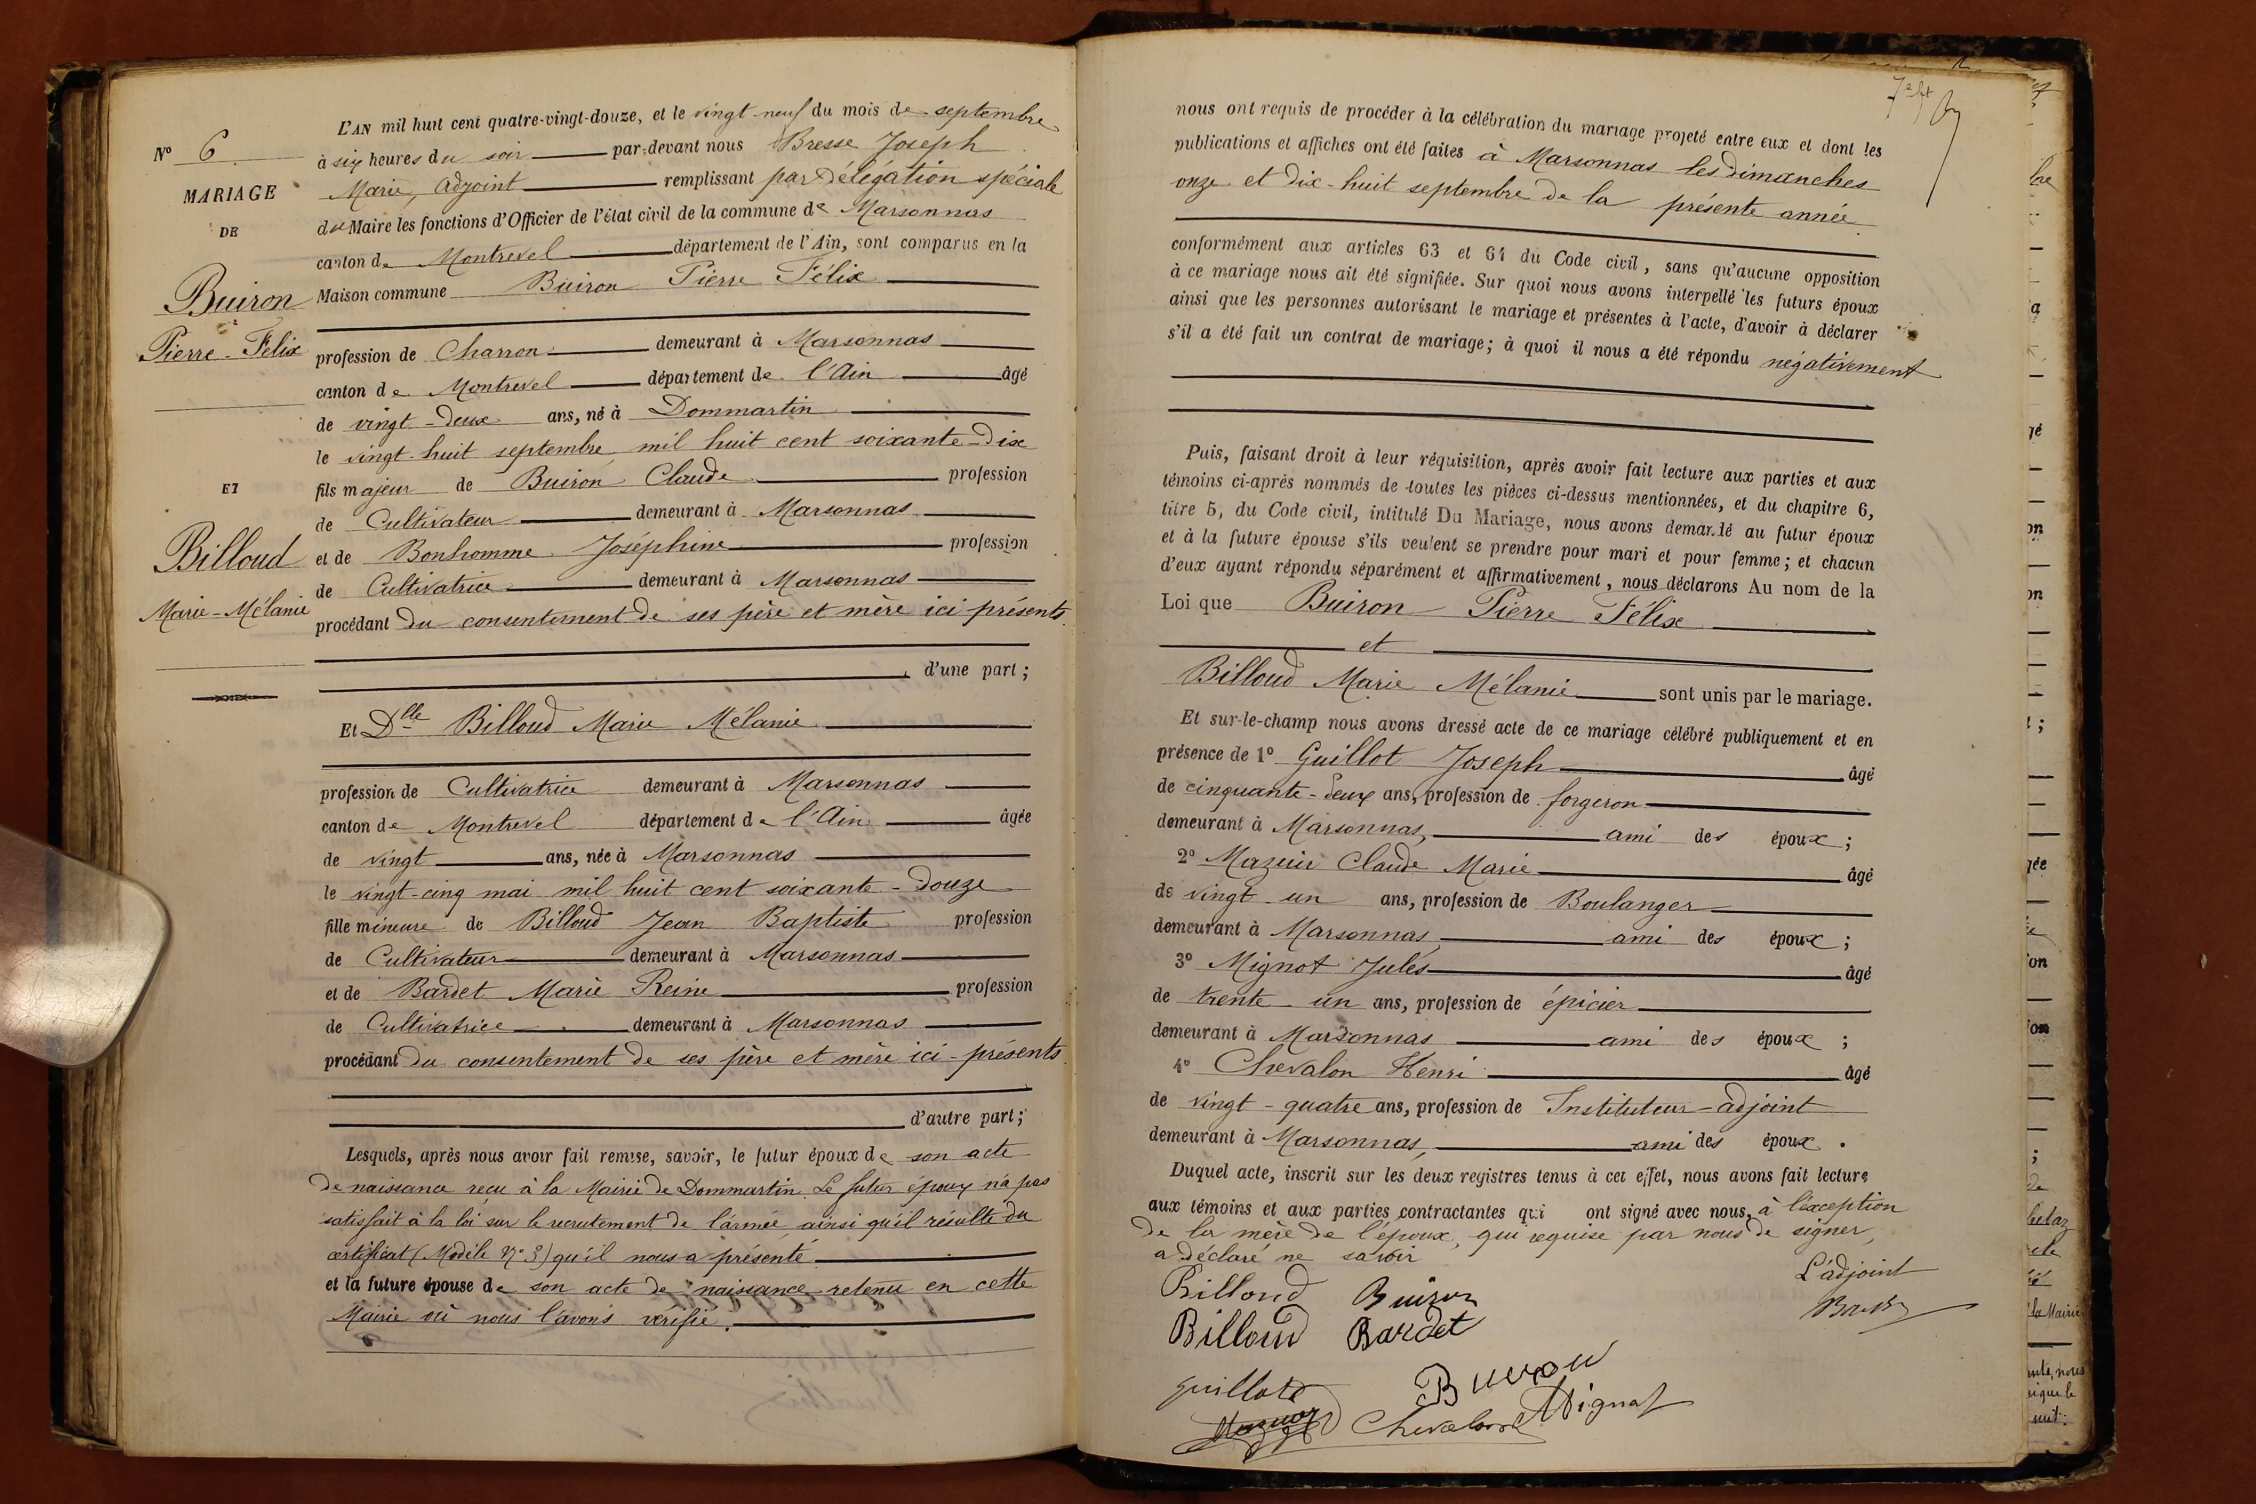 N° 6
MARIAGE
DE
Buiron
Pierre-Félix
ET
Billoud
Marie-Mélanie
L'AN mil huit cent quatre-vingt-douze, et le vingt-neuf du mois de septembre
à six heures du soir par-devant nous Bresse Joseph
Marie, adjoint remplissant par délégation spéciale
du Maire les fonctions d'Officier de l'état civil de la commune de Marsonnas
canton de Montrevel département de l'Ain, sont comparus en la
Maison commune Buiron Pierre Félix
profession de Charron demeurant à Marsonnas
canton de Montrevel département de l'Ain âgé
de vingt-deux ans, né à Dommartin
le vingt-huit septembre mil huit cent soixante-dix
fils majeur de Buiron Claude profession
de Cultivateur demeurant à Marsonnas
et de Bonhomme Joséphine profession
de Cultivatrice demeurant à Marsonnas
procédant du consentement de ses père et mère ici présents
d'une part ;
Et Dlle Billoud Marie Mélanie
profession de Cultivatrice demeurant à Marsonnas
canton de Montrevel département de l'Ain âgée
de vingt ans, née à Marsonnas
le vingt-cinq mai mil huit cent soixante-douze
fille mineure de Billoud Jean Baptiste profession
de Cultivateur demeurant à Marsonnas
et de Bardet Marie Reine profession
de Cultivatrice demeurant à Marsonnas
procédant du consentement de ses père et mère ici-présents
d'autre part ;
Lesquels, après nous avoir fait remise, savoir, le futur époux de son acte
de naissance reçu à la Mairie de Dommartin. Le futur époux n'a pas
satisfait à la loi sur le recrutement de l'armée, ainsi qu'il résulte du
certificat (Modèle N° 3) qu'il nous a présenté
et la future épouse de son acte de naissance retenu en cette
Mairie où nous l'avons vérifié.
nous ont requis de procéder à la célébration du mariage projeté entre eux et dont les
publications et affiches ont été faites à Marsonnas les dimanches
onze et dix-huit septembre de la présente année
conformément aux articles 63 et 64 du Code civil, sans qu'aucune opposition
à ce mariage nous ait été signifiée. Sur quoi nous avons interpellé les futurs époux
ainsi que les personnes autorisant le mariage et présentes à l'acte, d'avoir à déclarer
s'il a été fait un contrat de mariage ; à quoi il nous a été répondu négativement
Puis, faisant droit à leur réquisition, après avoir fait lecture aux parties et aux
témoins ci-après nommés de toutes les pièces ci-dessus mentionnées, et du chapitre 6,
titre 5, du Code civil, intitulé Du Mariage, nous avons demandé au futur époux
et à la future épouse s'ils veulent se prendre pour mari et pour femme ; et chacun
d'eux ayant répondu séparément et affirmativement, nous déclarons Au nom de la
Loi que Buiron Pierre Félix
et
Billoud Marie Mélanie sont unis par le mariage.
Et sur-le-champ nous avons dressé acte de ce mariage célébré publiquement et en
présence de 1° Guillot Joseph âgé
de cinquante-deux ans, profession de forgeron
demeurant à Marsonnas, ami des époux ;
2° Mazuir Claude Marie âgé
de vingt un ans, profession de Boulanger
demeurant à Marsonnas, ami des époux ;
3° Mignot Jules âgé
de trente un ans, profession de épicier
demeurant à Marsonnas ami des époux ;
4° Chevalon Henri âgé
de vingt-quatre ans, profession de Instituteur-adjoint
demeurant à Marsonnas, ami des époux .
Duquel acte, inscrit sur les deux registres tenus à cet effet, nous avons fait lecture
aux témoins et aux parties contractantes qui ont signé avec nous, à l'exception
de la mère de l'époux, qui requise par nous de signer,
a déclaré ne savoir
L'adjoint
Billoud Buiron
Billoud Bardet
Guillot Buiron
Chevalon Mignot